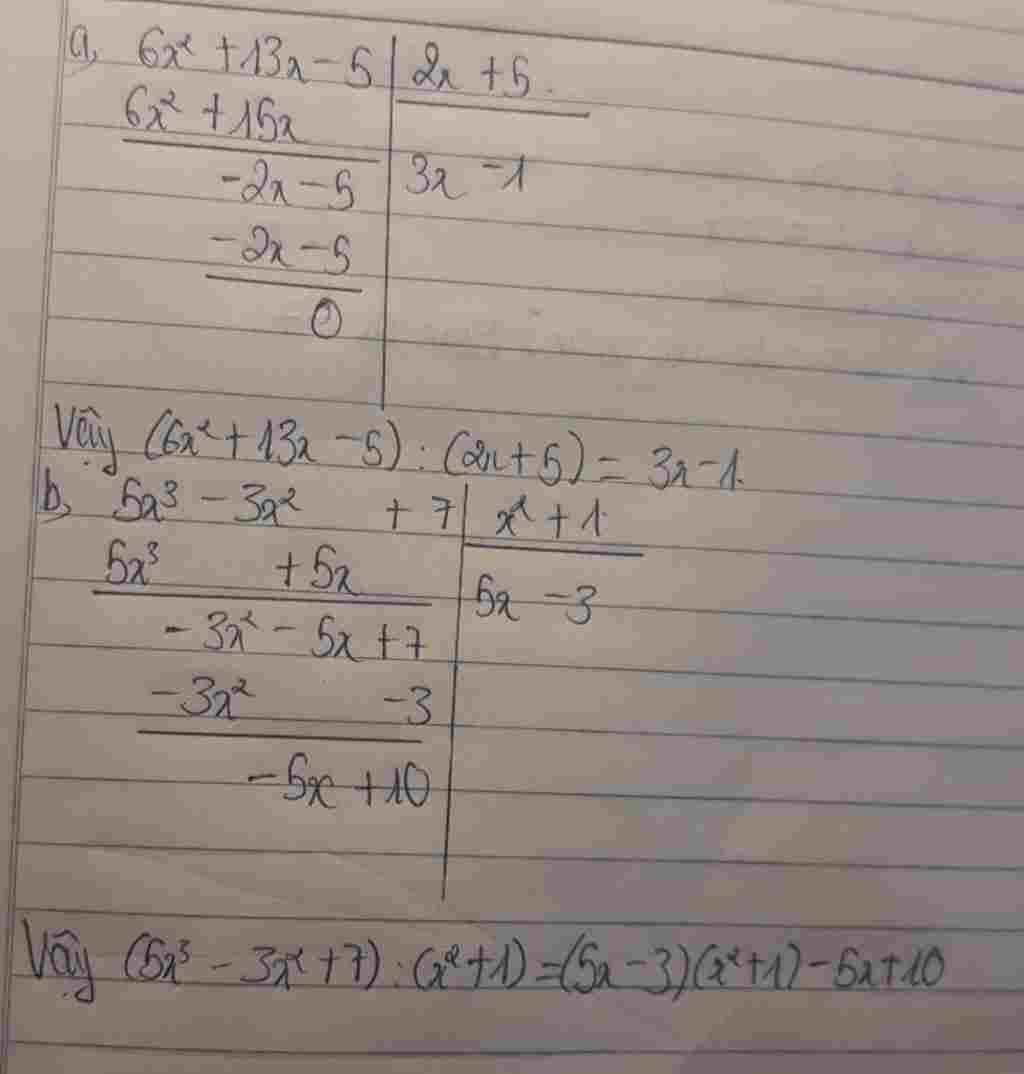 a, 6x² + 13x - 5 | 2x + 5
6x² + 15x
-2x - 5 | 3x - 1
-2x - 5
0
Vậy (6x² + 13x - 5) : (2x + 5) = 3x - 1.
b, 5x³ - 3x² + 7 | x² + 1
5x³ + 5x | 5x - 3
-3x² - 5x + 7
-3x² - 3
-5x + 10
Vậy (5x³ - 3x² + 7) : (x² + 1) = (5x - 3)(x² + 1) - 5x + 10